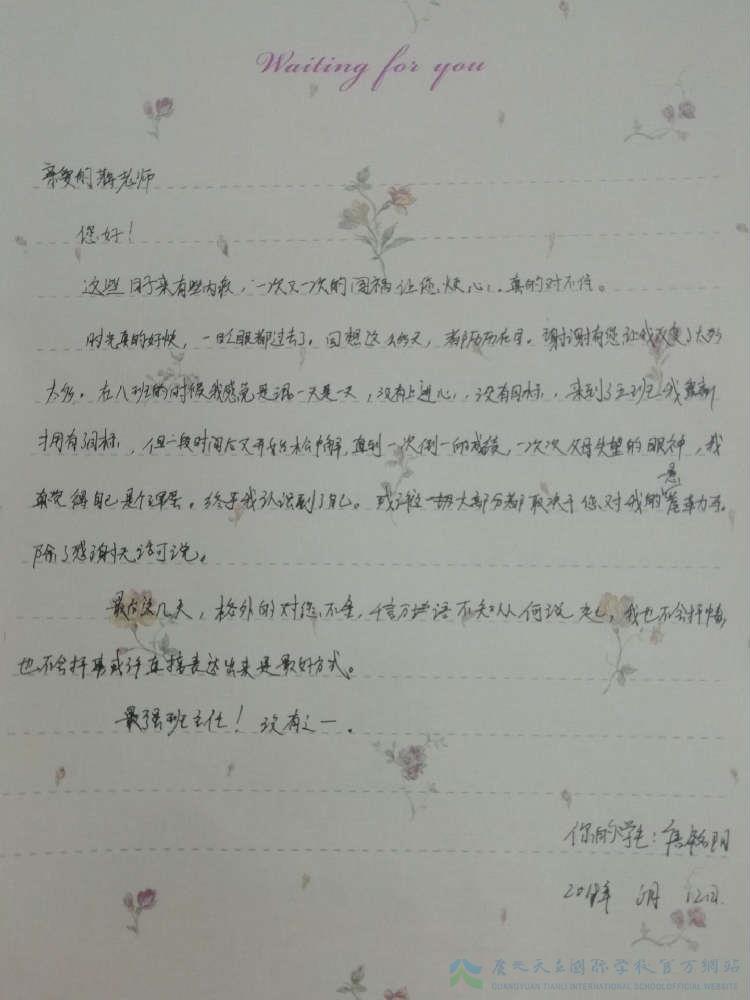 Waiting for you
亲爱的蒋老师
您好！
这些日子来有些内疚，一次又一次的闯祸让您烦心，真的对不住。
时光真的好快，一眨眼都过去了。回想这么多天，都历历在目。谢谢有您让我改变了太多
太多。在八班的时候我感觉是混一天是一天，没有上进心，没有目标，来到了五班我重新
拥有了目标，但一段时间后又开始松懈，直到一次倒一的成绩，一次次父母失望的眼神，我
真觉得自己是个浑蛋。终于我认识到了自己。或许这一切大部分都取决于您对我的
除了感谢无话可说。
最后这几天，格外的对您不舍，千言万语不知从何说起，我也不会抒情，
也不会抒事或许直接表达出来是最好方式。
最强班主任！没有之一。
你的学生：
2018年 6月 12日
广元天立国际学校官方網站
GUANGYUAN TIANLI INTERNATIONAL SCHOOL OFFICIAL WEBSITE